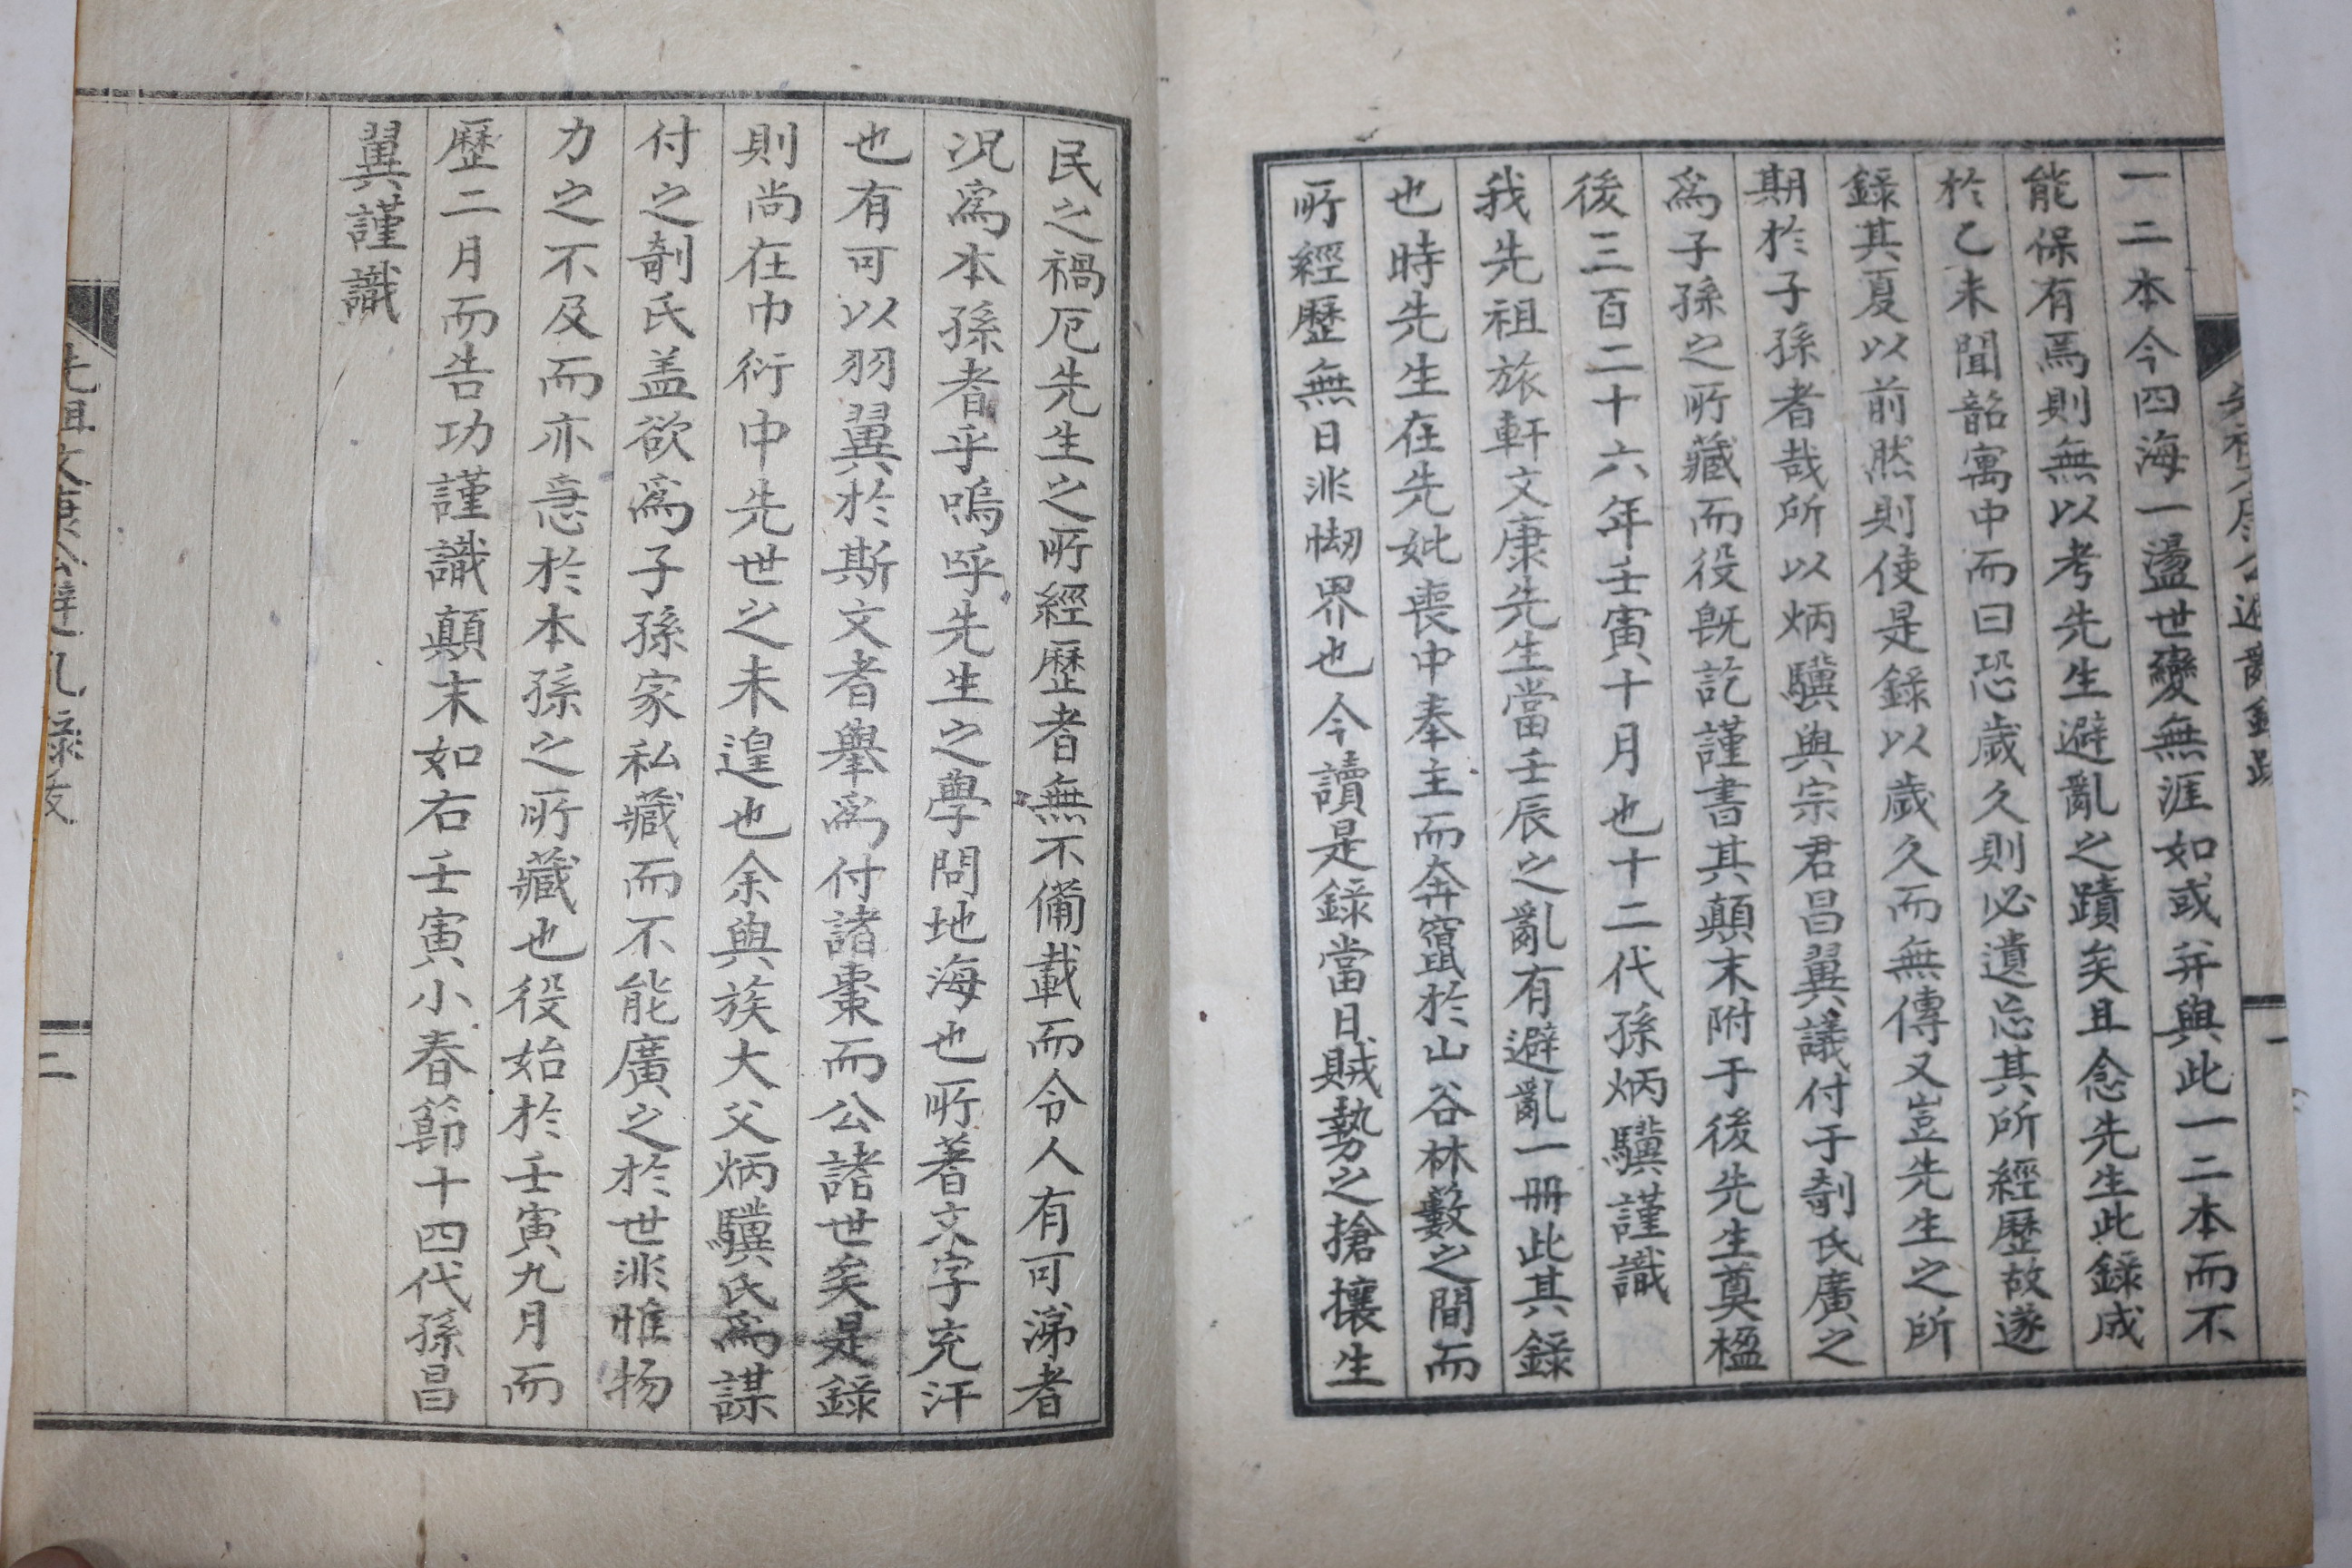 先祖文康公避亂錄跋
一
一二本今四海一盪世變無涯如或幷與此一二本而不
能保有焉則無以考先生避亂之蹟矣且念先生此錄成
於乙未聞韶寓中而曰恐歲久則必遺忘其所經歷故遂
錄其夏以前然則使是錄以歲久而無傳又豈先生之所
期於子孫者哉所以炳驥與宗君昌翼議付于剞氏廣之
爲子孫之所藏而役旣訖謹書其顛末附于後先生奠楹
後三百二十六年壬寅十月也十二代孫炳驥謹識
我先祖旅軒文康先生當壬辰之亂有避亂一冊此其錄
也時先生在先妣喪中奉主而奔竄於山谷林藪之間而
所經歷無日非㘅界也今讀是錄當日賊勢之搶攘生
民之禍厄先生之所經歷者無不備載而令人有可涕者
況爲本孫者乎嗚呼先生之學問地海也所著文字充汗
也有可以羽翼於斯文者擧爲付諸棗而公諸世矣是錄
則尚在巾衍中先世之未遑也余與族大父炳驥氏爲謀
付之剞氏盖欲爲子孫家私藏而不能廣之於世非惟物
力之不及而亦急於本孫之所藏也役始於壬寅九月而
歷二月而告功謹識顛末如右壬寅小春節十四代孫昌
翼謹識
先祖文康公避亂錄跋
二